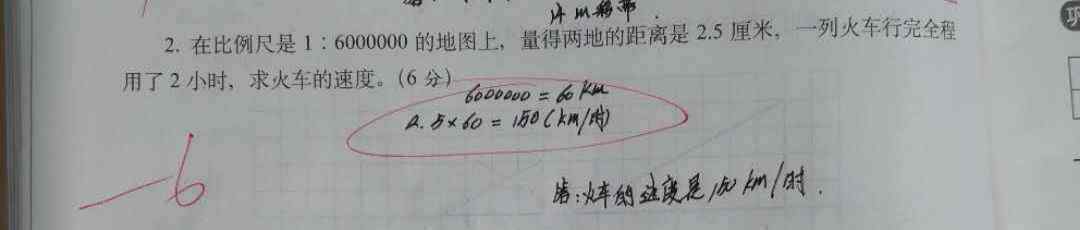 2. 在比例尺是 1：6000000 的地图上，量得两地的距离是 2.5 厘米，一列火车行完全程
用了 2 小时，求火车的速度。(6 分)
6000000 = 60 km
2.5×60 = 150 (km/时)
-6
答:火车的速度是150 km/时.